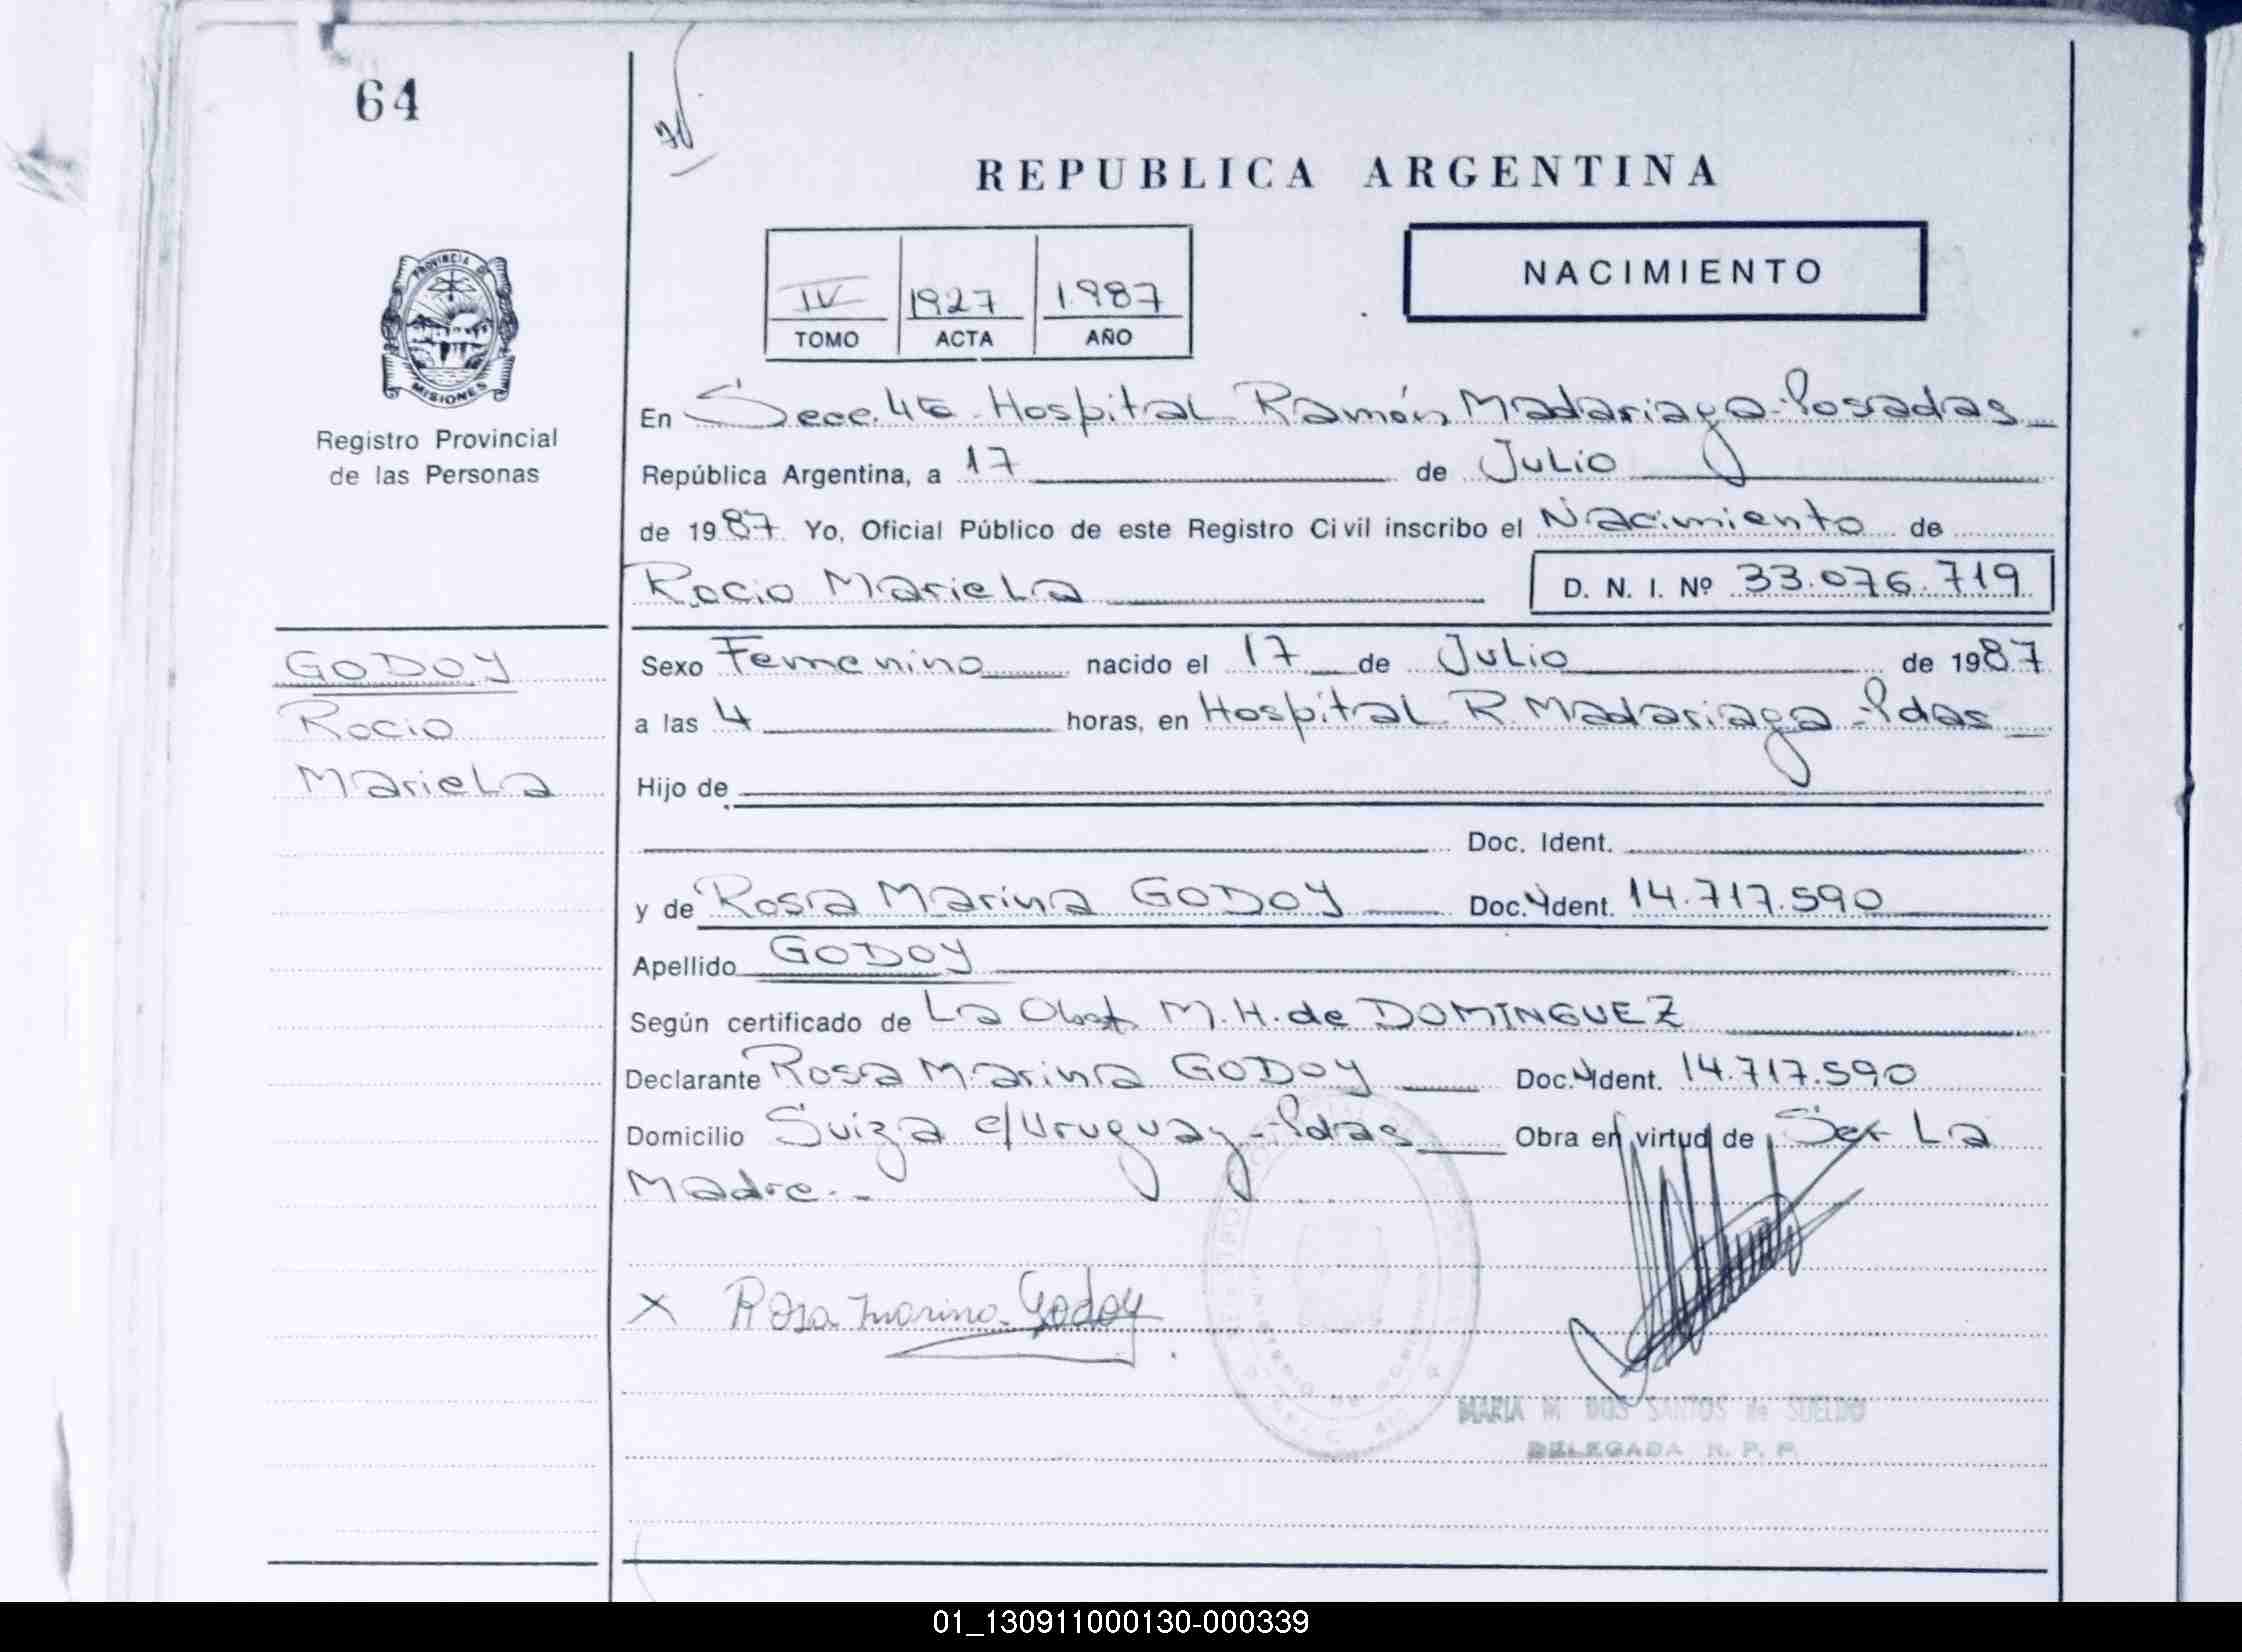 64
REPUBLICA ARGENTINA
NACIMIENTO
IV 1927 1.987
TOMO ACTA AÑO
PROVINCIA DE
MISIONES
Registro Provincial
de las Personas
En Secc. 4ta - Hospital Ramón Madariaga - Posadas
República Argentina, a 17 de Julio
de 1987. Yo, Oficial Público de este Registro Civil inscribo el Nacimiento de
Rocio Mariela D. N. I. Nº 33.076.719
GODOY
Rocio
Mariela
Sexo Femenino nacido el 17 de Julio de 1987
a las 4 horas, en Hospital R. Madariaga - Pdas
Hijo de
Doc. Ident.
y de Rosa Marina GODOY Doc. Ident. 14.717.590
Apellido GODOY
Según certificado de La Obst. M. H. de DOMINGUEZ
Declarante Rosa Marina GODOY Doc. Ident. 14.717.590
Domicilio Suiza c/ Uruguay - Pdas Obra en virtud de Ser La
Madre.-
X Rosa Marina Godoy
MARIA M. DOS SANTOS de SUELDO
DELEGADA R. P. P.
01_130911000130-000339